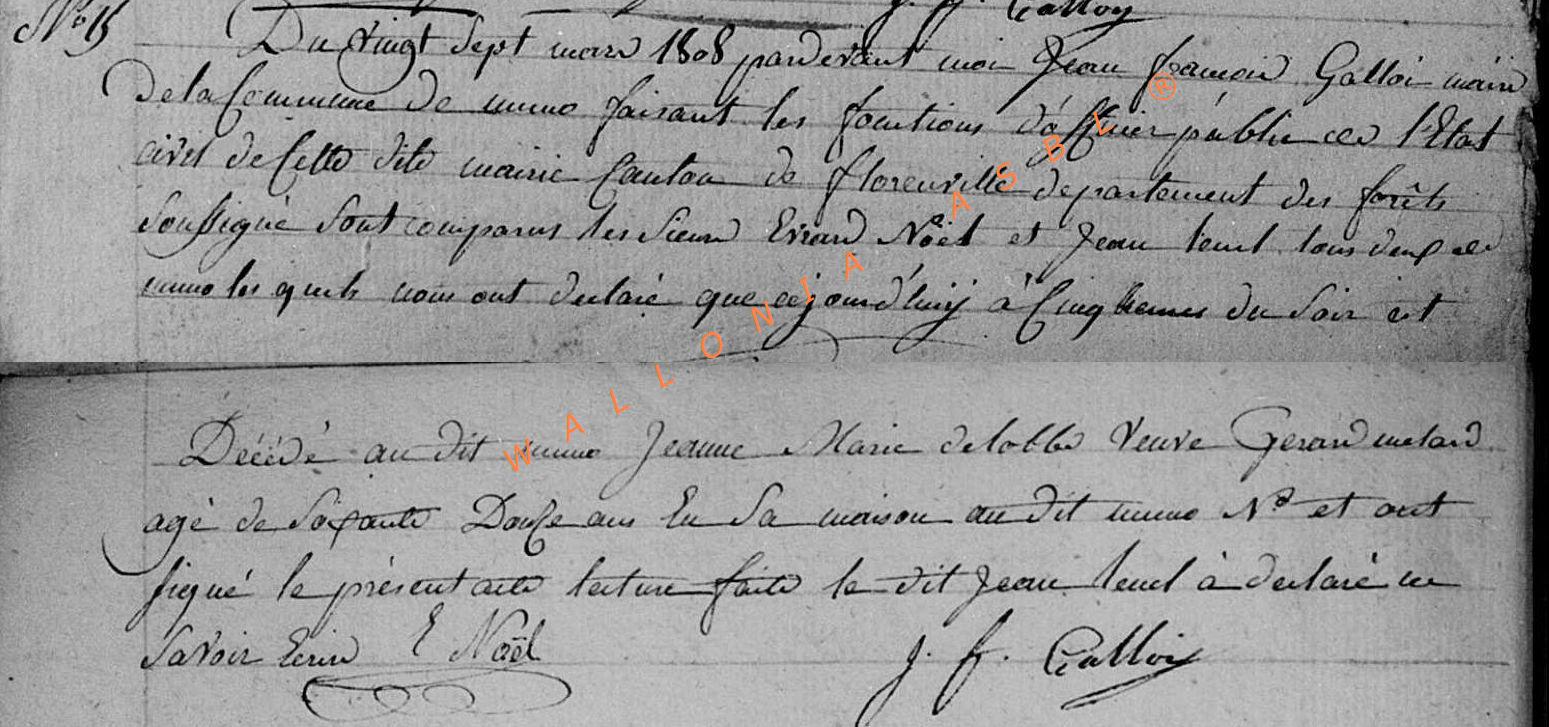 J. f. Galloy
N.º 15
Du vingt Sept mars 1808 pardevant moi Jean françois Galloi maire
de la Commune de muno faisant les fonctions d'officier public de l'Etat
civil de Cette dite mairie Canton de florenville departement des forêts
Soussigné Sont comparus les Sieurs Evrard Noël et Jean tous deux de
muno les quels nous ont declaré que cejourd'huij à Cinq heures du Soir est
Décédé au dit muno Jeanne Marie delobbe Veuve Gerard
agé de Soixante Douze ans En Sa maison au dit muno Nº et ont
signé le présent acte lecture faite le dit Jean à declaré ne
Savoir Ecrire E Noël
J. f. Galloi
WALLONIA ASBL ®